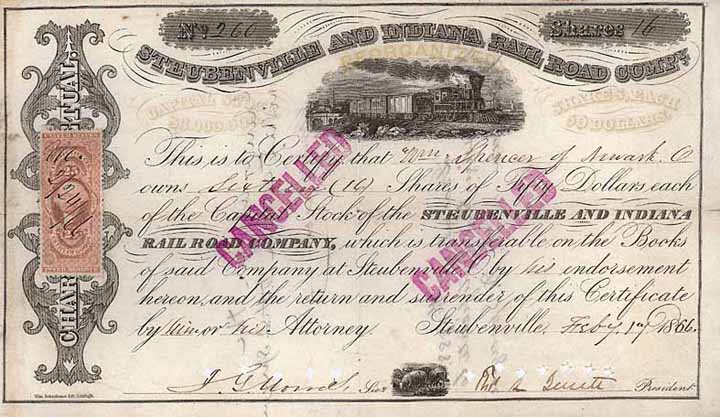 No. 260
Shares 16
STEUBENVILLE AND INDIANA RAIL ROAD COMPY.
REORGANIZED
CAPITAL STOCK
SHARES, EACH
50 DOLLARS.
CHARTER PERPETUAL
This is to Certify that Wm Spencer of Newark O
owns Sixteen (16) Shares of Fifty Dollars each
of the Capital Stock of the STEUBENVILLE AND INDIANA
RAIL ROAD COMPANY, which is transferable on the Books
of said Company at Steubenville O. by his endorsement
hereon, and the return and surrender of this Certificate
by him or his Attorney. Steubenville, Feby 1866.
Secy
President
CANCELLED
CANCELLED
25